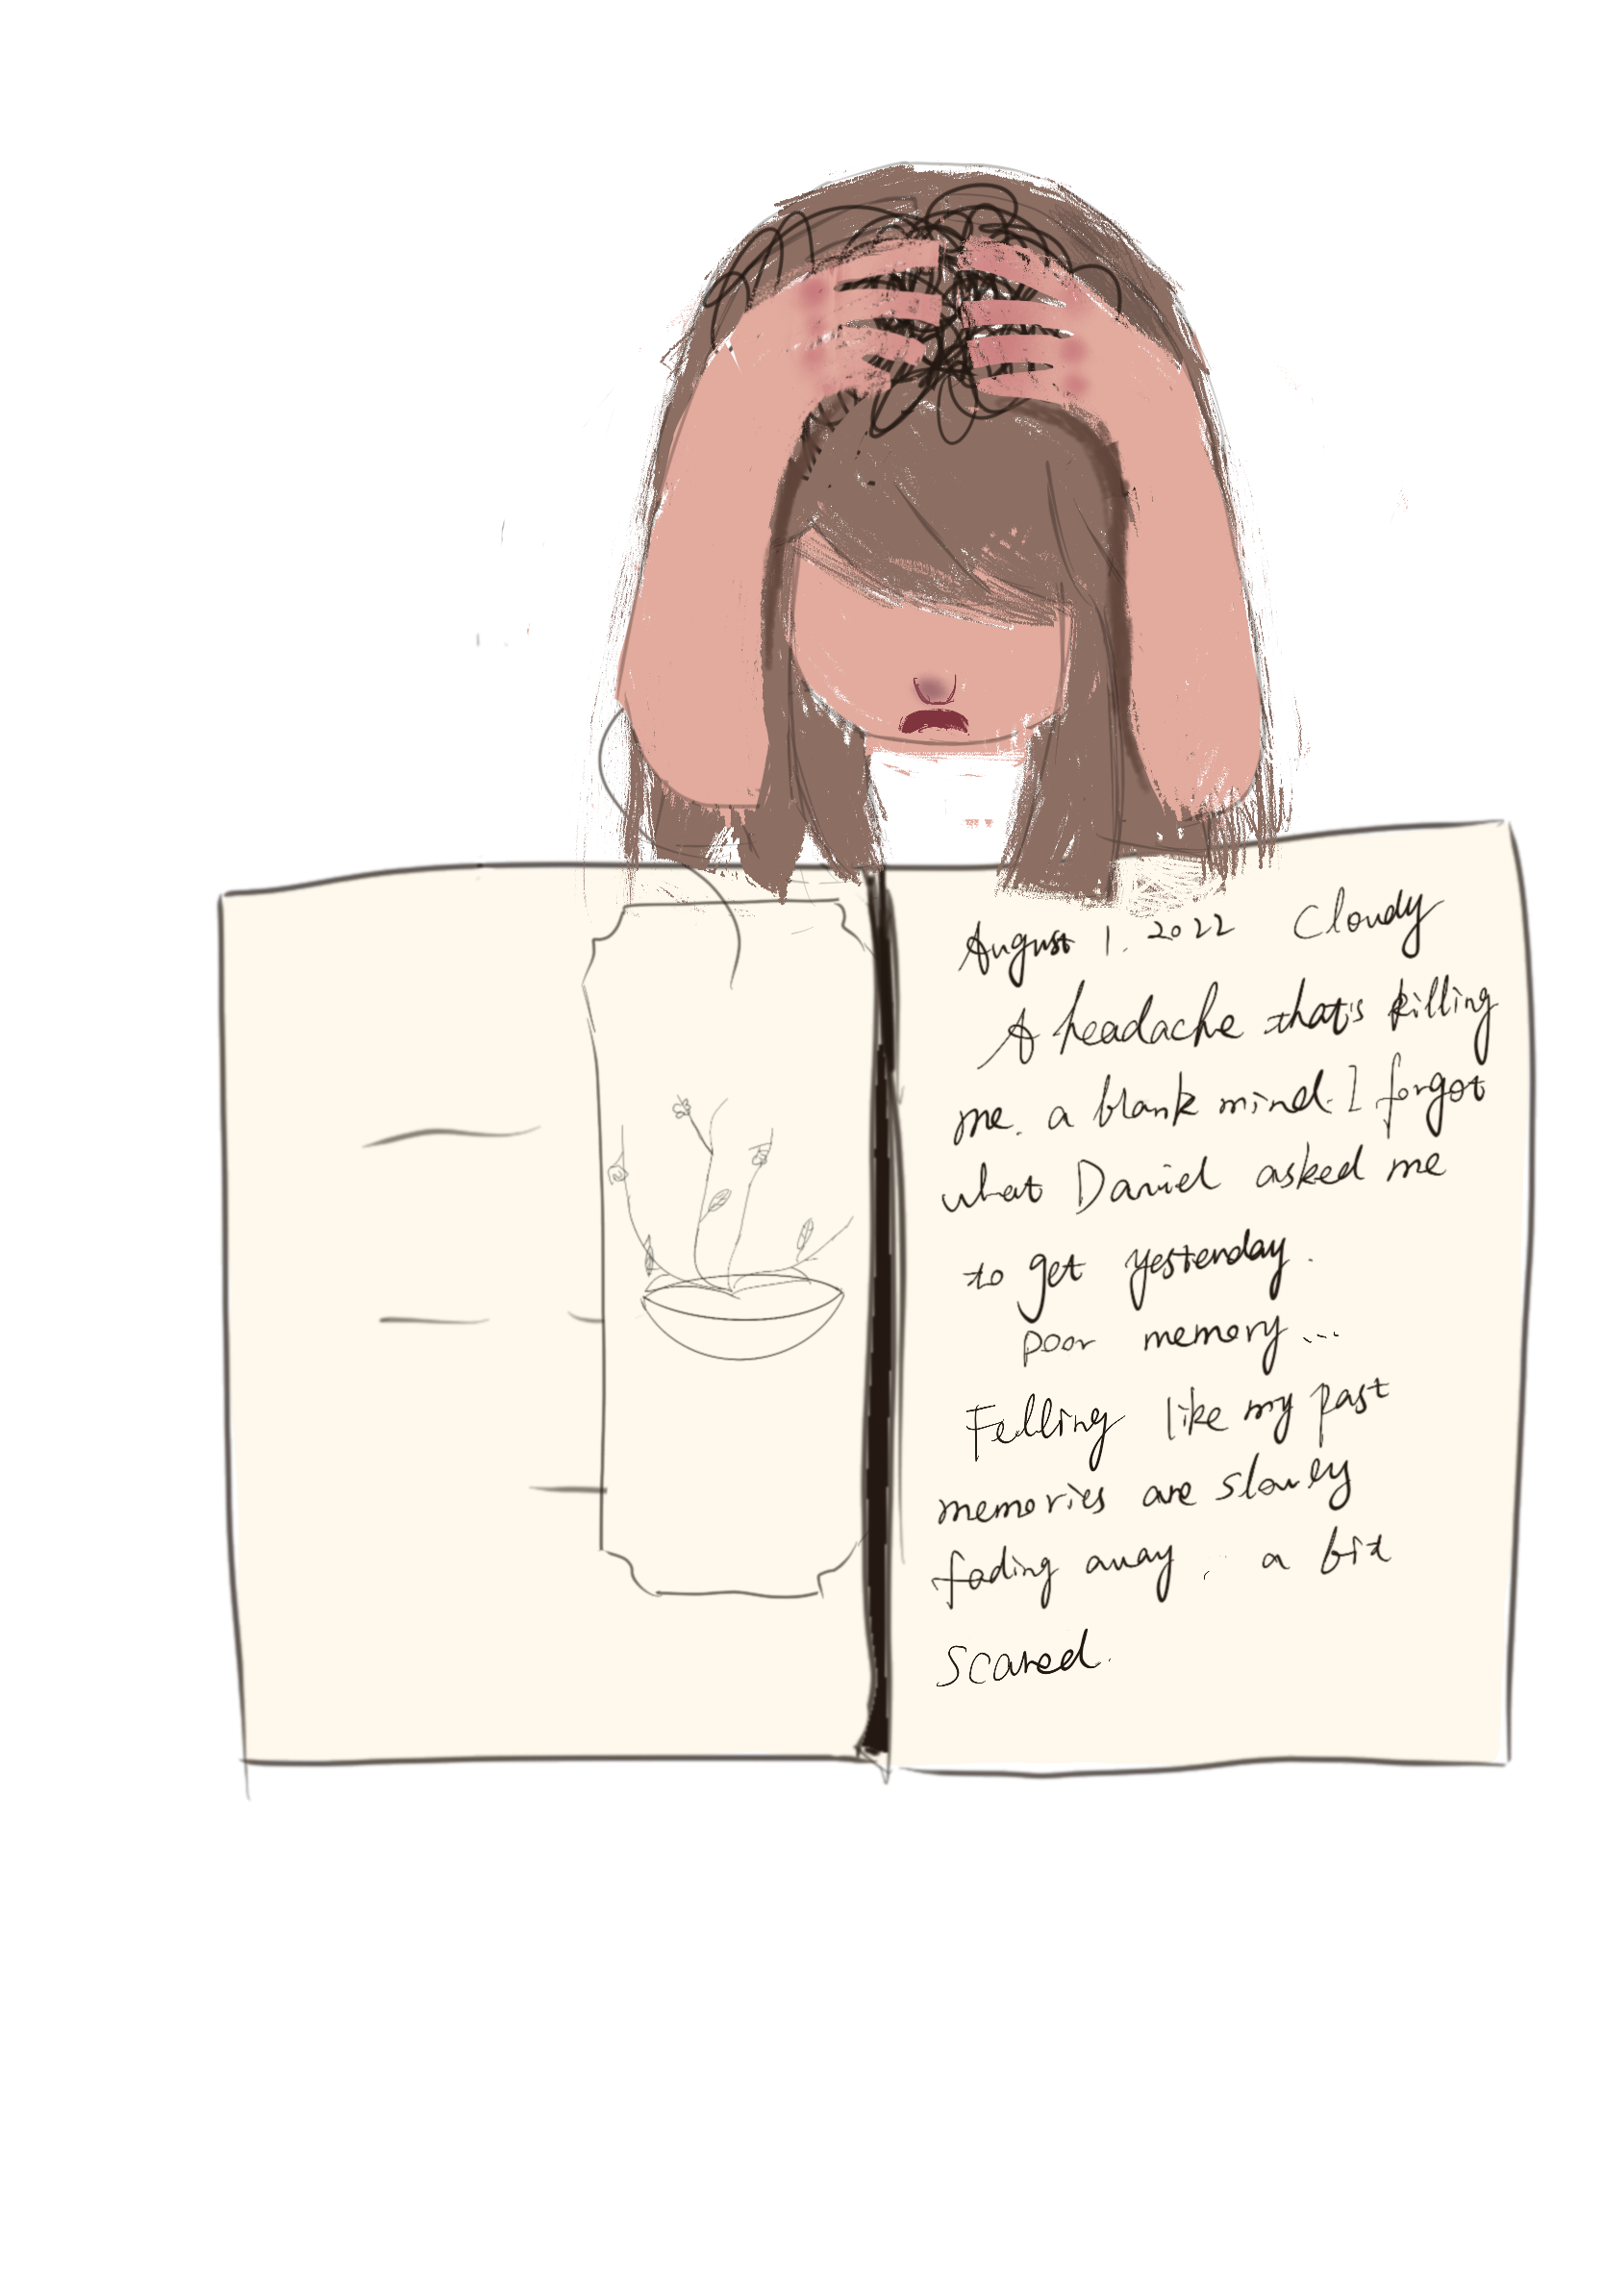 August 1. 2022 Cloudy
A headache that's killing
me. a blank mind. I forgot
what Daniel asked me
to get yesterday.
poor memory...
Felling like my past
memories are slowly
fading away, a bit
scared.